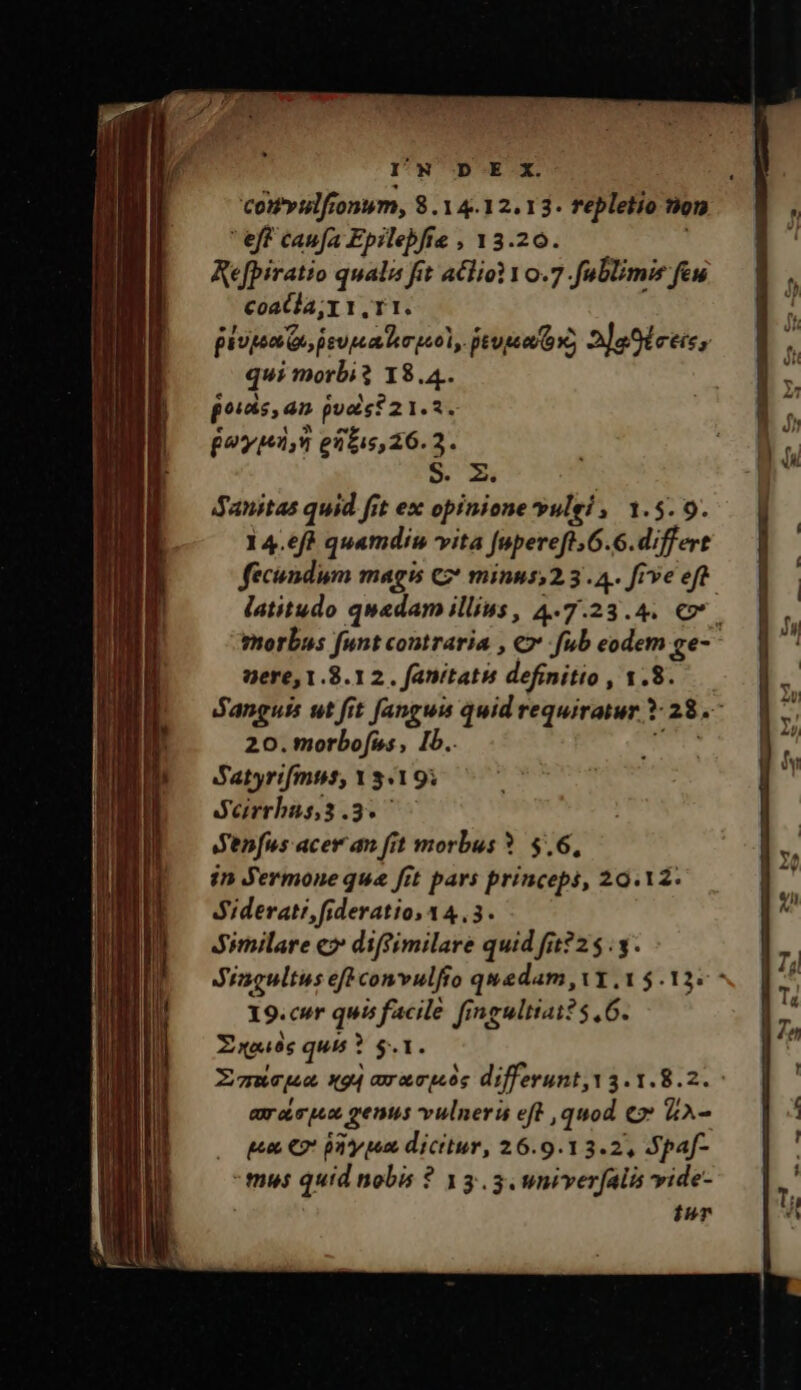 INDEX.
convulſionum, 8.14.12.13. repletio non
eſt cauſa Epilepſiæ, 13.20.
Reſpiratio qualis ſit actio? 10.7. ſublimis ſeu
coacta, 11, 11.
ῥεύματα, ῥευματισμοὶ, ῥευματικαὶ διαθέσεις,
qui morbi? 18.4.
ῥοιὰς, an ῥυάς? 21.3.
ῥωγμὴ, ἢ ῥῆξις, 26.3.
S. Σ.
Sanitas quid ſit ex opinione vulgi, 1.5.9.
14. eſt quamdiu vita ſupereſt, 6.6. differt
ſecundum magis & minus, 23.4. ſive eſt
latitudo quædam illius, 4.7.23.4. &
morbus ſunt contraria, & ſub eodem ge-
nere, 1.8.12. ſanitatis definitio, 1.8.
Sanguis ut ſit ſanguis quid requiratur? 28.
20. morboſus, Ib.
Satyriſmus, 13.19.
Scirrhus, 3.3.
Senſus acer an ſit morbus? 5.6.
in Sermone quæ ſit pars princeps, 20.12.
Siderati, ſideratio, 14.3.
Similare & diſſimilare quid ſit? 25.3.
Singultus eſt convulſio quædam, 11.15.13.
19. cur quis facile ſingultiat? 5.6.
Σκαιὸς quis? 5.1.
Σπάσμα καὶ σπασμὸς differunt, 13.1.8.2.
σπάσμα genus vulneris eſt, quod &
μα & ῥῆγμα dicitur, 26.9.13.2, Spaſ-
mus quid nobis? 13.3. univerſalis vide-
tur